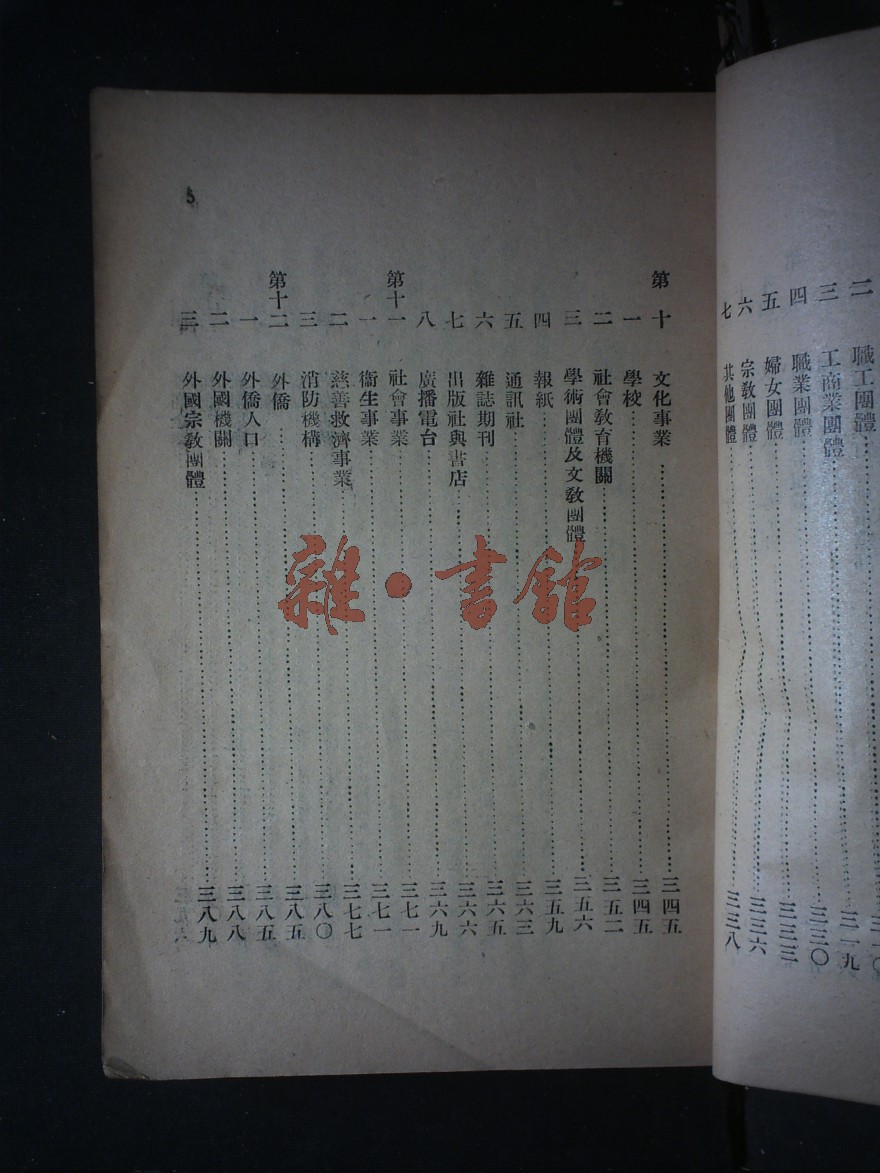 二 職工團體
三 工商業團體 三一九
四 職業團體 三三〇
五 婦女團體 三三三
六 宗教團體 三三六
七 其他團體 三三八
5
第十 文化事業 三四五
一 學校 三四五
二 社會教育機關 三五二
三 學術團體及文教團體 三五六
四 報紙 三五九
五 通訊社 三六三
六 雜誌期刊 三六五
七 出版社與書店 三六六
八 廣播電台 三六九
第十一 社會事業 三七一
一 衞生事業 三七一
二 慈善救濟事業 三七七
三 消防機構 三八〇
第十二 外僑 三八五
一 外僑人口 三八五
二 外國機關 三八八
三 外國宗教團體 三八九
雜·書館